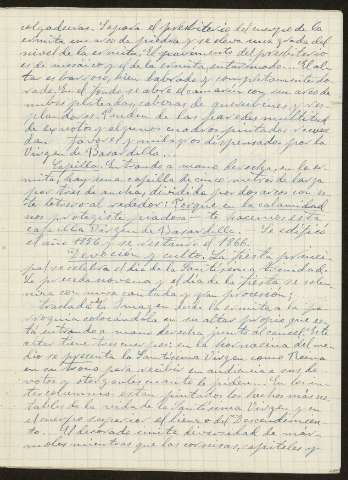 colgaduras. Separa el presbiterio del cuerpo de la
ermita un arco de piedra y se eleva una grada del
nivel de la ermita. El pavimento del presbiterio
es de mosaico y el de la ermita entarimado. El al-
tar es barroso, bien labrado y completamente do-
rado. En el fondo se abre el camarín con un arco de
nubes plateadas, cabezas de querubines, y res-
plandores. Penden de las paredes multitud
de exvotos y algunos cuadros pintados recuer-
dan favores y milagros dispensados por la
Virgen de Basardilla...
Capilla. Entrando a mano derecha, en la er-
mita, hay una capilla de cinco metros de larga
por tres de ancha, dividida por dos arcos con es-
te letrero al rededor: Porque en la calamidad
nos protegiste piadosa - te hacemos esta
capilla Virgen de Basardilla. Se edificó
el año 1856 y se restauró el 1866.
Devoción y culto. La fiesta princi-
pal se celebra el día de la Santísima Trinidad.
La precede novena y el día de la fiesta se solem-
niza con misa cantada y gran procesión;
trasladan la imagen desde la ermita a la pa-
rroquia colocándola en su altar propio que es-
tá entrando a mano derecha junto al cancel. Este
altar tiene tres cuerpos: en la hornacina del me-
dio se presenta la Santísima Virgen como Reina
en su trono para recibir en audiencia a sus de-
votos y otorgarles cuanto le piden... En los in-
tercolumnios están pintados los hechos más no-
tables de la vida de la Santísima Virgen, y en
el cuerpo superior el lienzo del Descendimien-
to. El decorado imita diversidad de már-
moles mientras que las cornisas, capiteles y